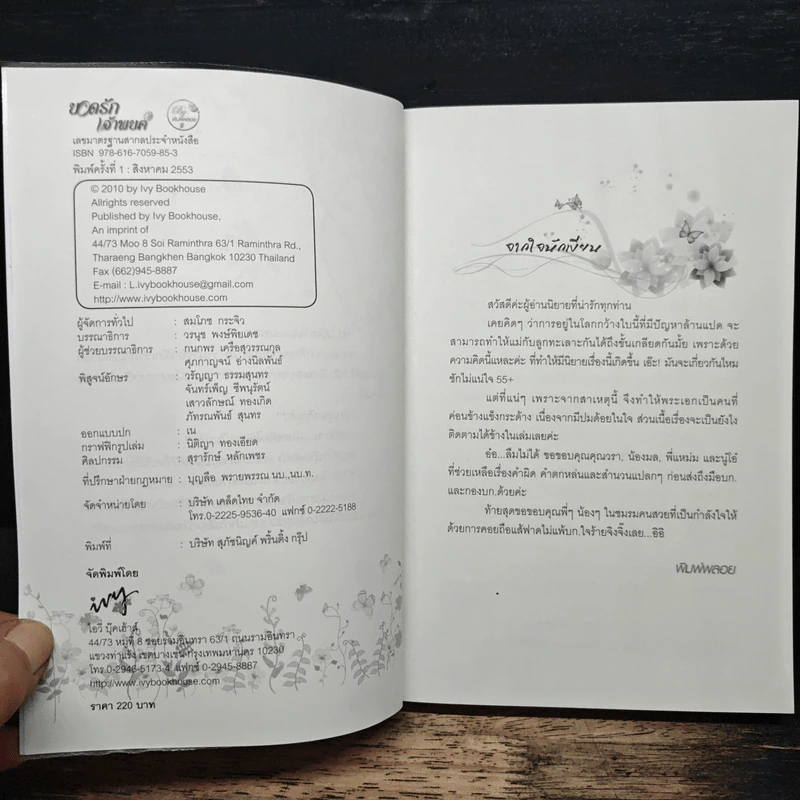 บวดรัก
เจ้าพยศ
By
พิมพ์พลอย
เลขมาตรฐานสากลประจำหนังสือ
ISBN 978-616-7059-85-3
พิมพ์ครั้งที่ 1 : สิงหาคม 2553
© 2010 by Ivy Bookhouse
Allrights reserved
Published by Ivy Bookhouse,
An imprint of
44/73 Moo 8 Soi Raminthra 63/1 Ramintra Rd.,
Tharaeng Bangkhen Bangkok 10230 Thailand
Fax (662)945-8887
E-mail : L.ivybookhouse@gmail.com
http://www.ivybookhouse.com
ผู้จัดการทั่วไป : สมโภช กระจิว
บรรณาธิการ : วรนุช พงษ์พิยเดช
ผู้ช่วยบรรณาธิการ : กนกพร เครือสุวรรณกุล
ศุภกาญจน์ อ่างนิลพันธ์
พิสูจน์อักษร : วรัญญา ธรรมสุนทร
จันทร์เพ็ญ ชีพนุรัตน์
เสาวลักษณ์ ทองเกิด
ภัทรณพันธ์ สุนทร
ออกแบบปก : เน
กราฟฟิกรูปเล่ม : นิติญา ทองเอียด
ศิลปกรรม : สุรารักษ์ หลักเพชร
ที่ปรึกษาฝ่ายกฎหมาย : บุญลือ พรายพรรณ นบ.,นบ.ท.
จัดจำหน่ายโดย : บริษัท เคล็ดไทย จำกัด
โทร.0-2225-9536-40 แฟกซ์ 0-2222-5188
พิมพ์ที่ : บริษัท สุภัชนิญค์ พริ้นติ้ง กรุ๊ป
จัดพิมพ์โดย
ivy
ไอวี่ บุ๊คเฮ้าส์
44/73 หมู่ที่ 8 ซอยรามอินทรา 63/1 ถนนรามอินทรา
แขวงท่าแร้ง เขตบางเขน กรุงเทพมหานคร 10230
โทร.0-2946-5173-4 แฟกซ์ 0-2945-8887
http://www.ivybookhouse.com
ราคา 220 บาท
จากใจนักเขียน
สวัสดีค่ะผู้อ่านนิยายที่น่ารักทุกท่าน
เคยคิดๆ ว่าการอยู่ในโลกกว้างใบนี้ที่มีปัญหาล้านแปด จะ
สามารถทำให้แม่กับลูกทะเลาะกันได้ถึงขั้นเกลียดกันมั้ย เพราะด้วย
ความคิดนี้แหละค่ะ ที่ทำให้มีนิยายเรื่องนี้เกิดขึ้น เอ๊ะ! มันจะเกี่ยวกันไหม
ชักไม่แน่ใจ 55+
แต่ที่แน่ๆ เพราะจากสาเหตุนี้ จึงทำให้พระเอกเป็นคนที่
ค่อนข้างแข็งกระด้าง เนื่องจากมีปมด้อยในใจ ส่วนเนื้อเรื่องจะเป็นยังไง
ติดตามได้ข้างในเล่มเลยค่ะ
อ๋อ...ลืมไม่ได้ ขอขอบคุณคุณวรา, น้องมล, พี่แหม่ม และนู๋โอ๋
ที่ช่วยเหลือเรื่องคำผิด คำตกหล่นและสำนวนแปลกๆ ก่อนส่งถึงมือบก.
และกองบก.ด้วยค่ะ
ท้ายสุดขอขอบคุณพี่ๆ น้องๆ ในชมรมคนสวยที่เป็นกำลังใจให้
ด้วยการคอยถือแส้ฟาดไม่แพ้บก.ใจร้ายจิงจิ๊งเลย...อิอิ
พิมพ์พลอย